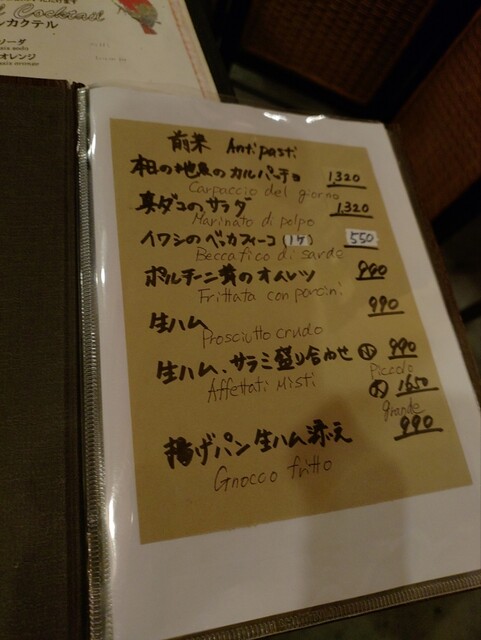 Cocktail
ルカクテル
ソーダ
オレンジ
前菜 Antipasti
相の地魚のカルパッチョ 1,320
Carpaccio del giorno
真ダコのサラダ 1,320
Marinato di polpo
イワシのベッカフィーコ (1ケ) 550
Beccafico di sarde
ポルチーニ茸のオムレツ 990
Frittata con porcini
生ハム 990
Prosciutto crudo
生ハム、サラミ盛り合わせ 小 990
Piccolo
Affettati Misti 大 1650
grande
揚げパン生ハム添え 990
Gnocco fritto